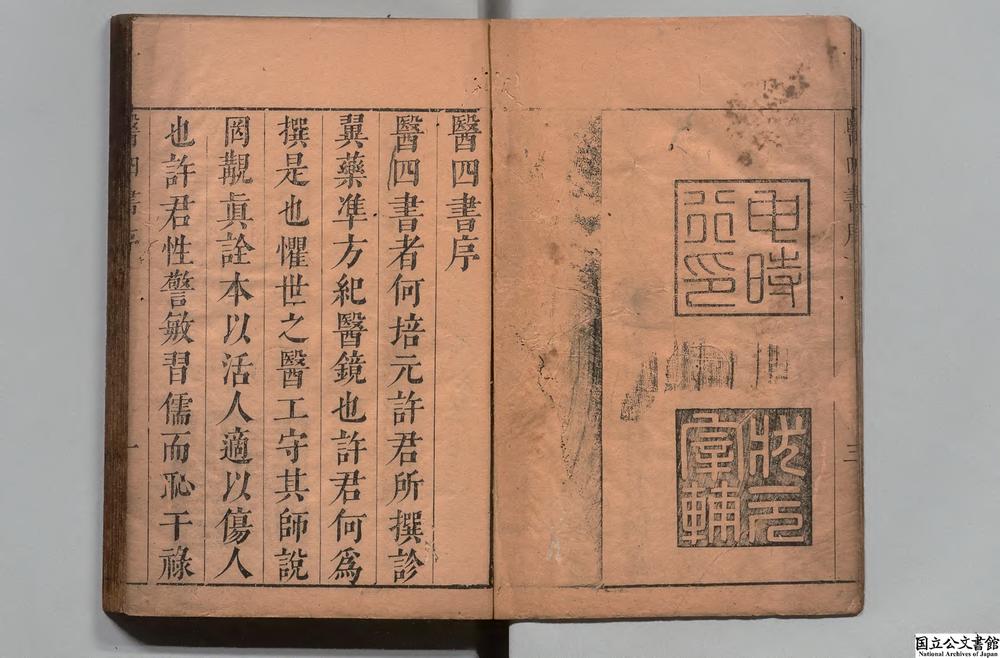 醫四書序
三
申時
行印
狀元
宰輔
醫四書序
醫四書者何培元許君所撰診
翼藥准方紀醫鏡也許君何爲
撰是也懼世之醫工守其師說
罔覩眞詮本以活人適以傷人
也許君性警敏習儒而恥干祿
醫四書序
一
国立公文書館
National Archives of Japan